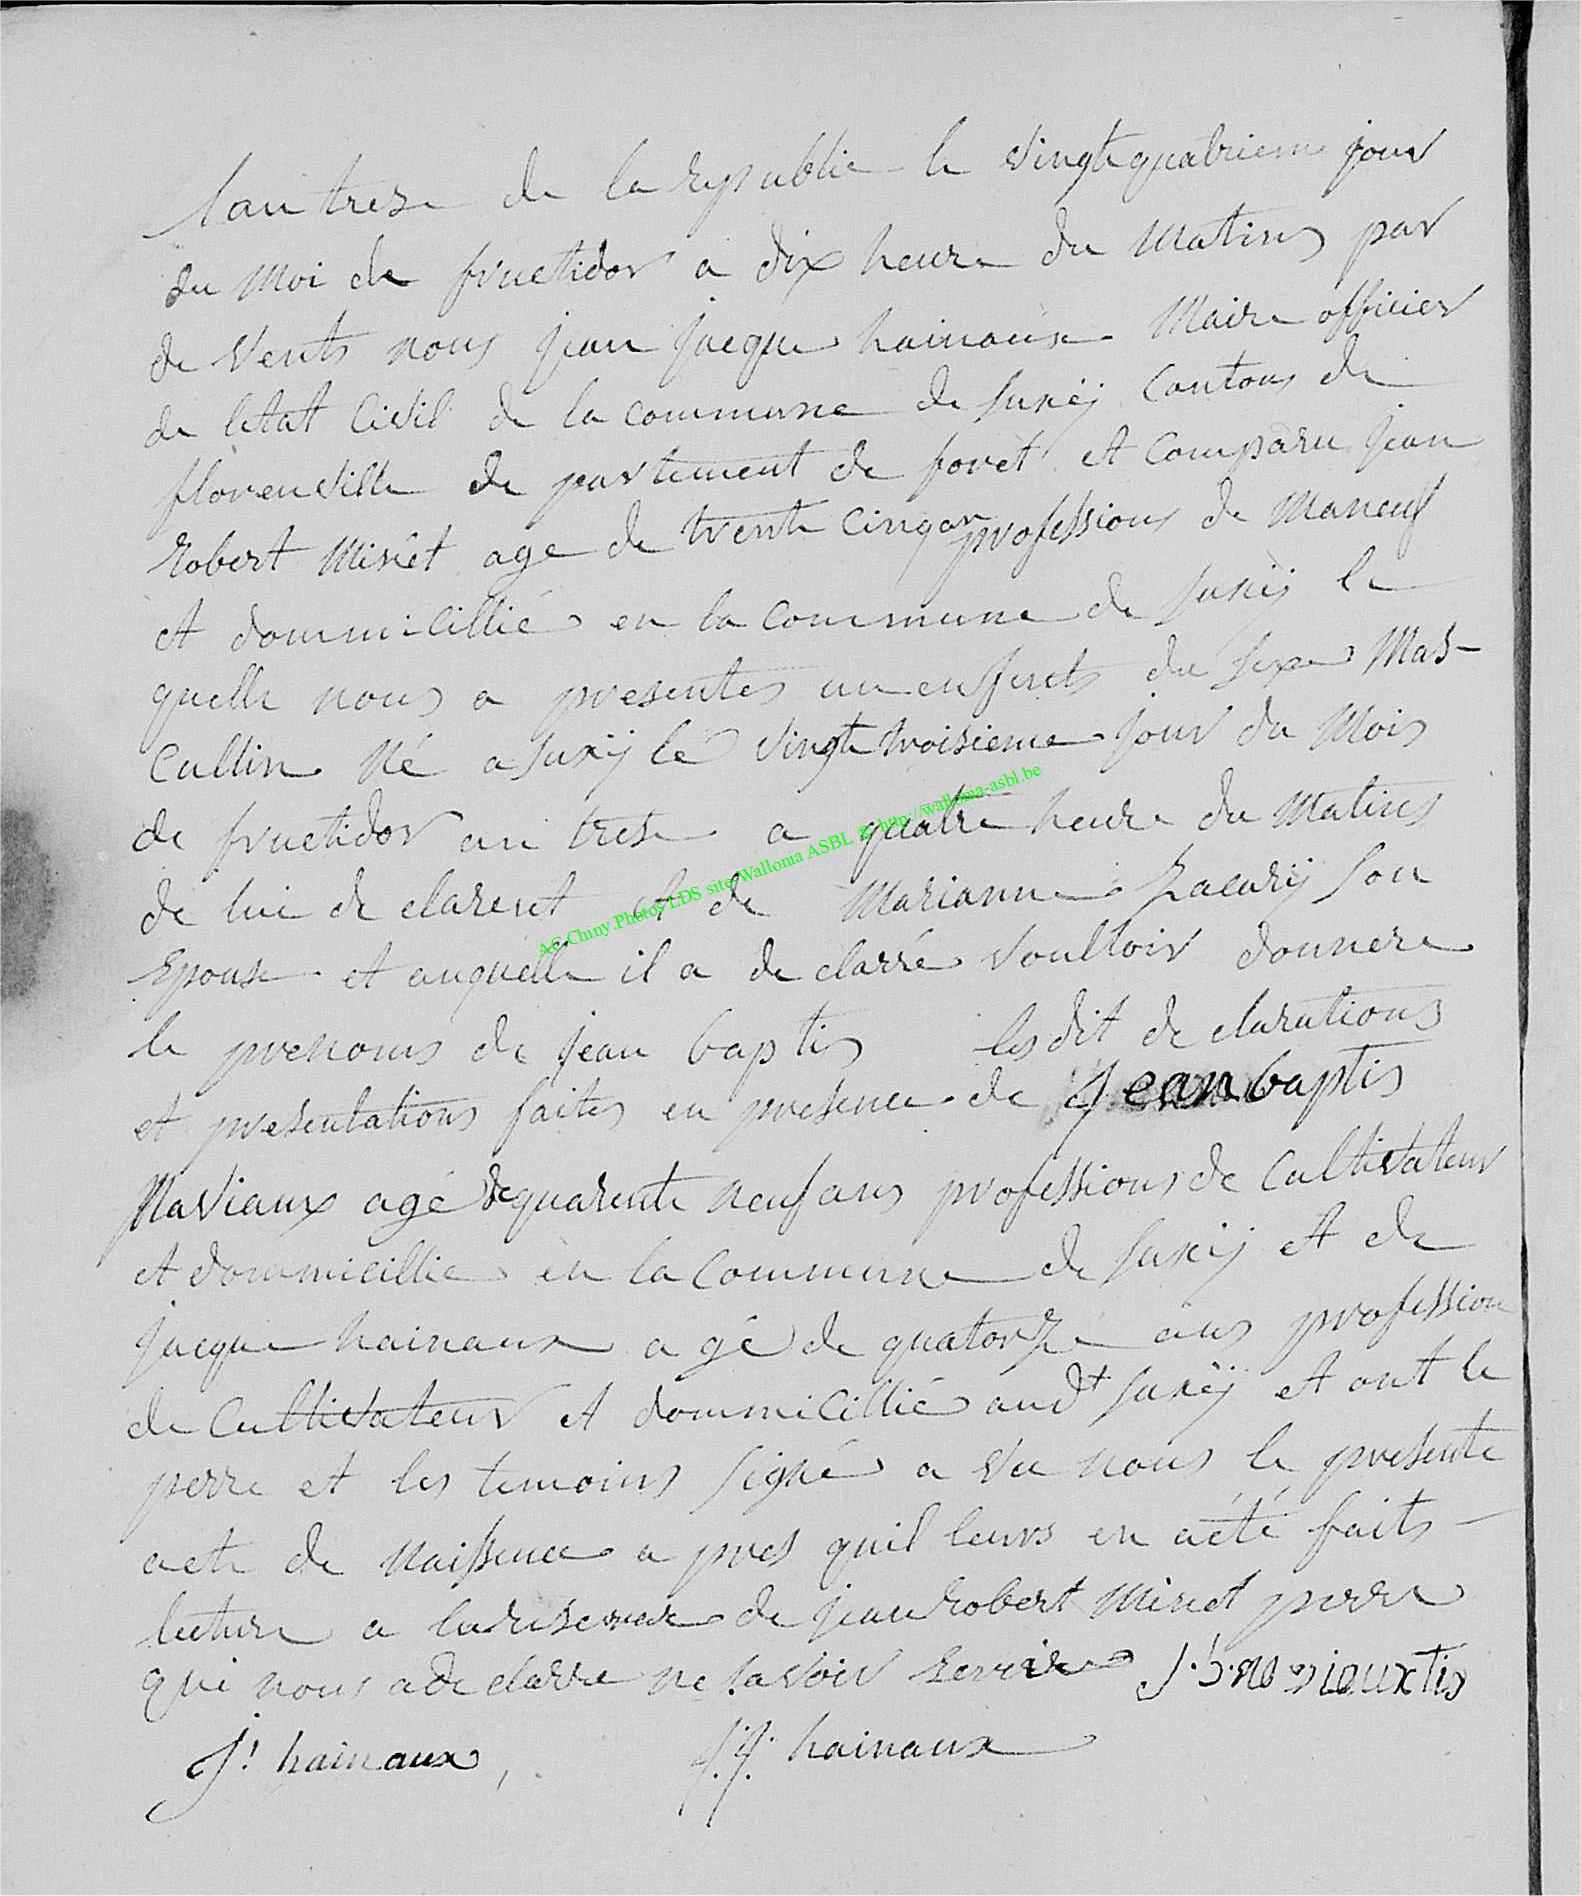 lan trese de la republie le vingtquatrieme jour
du moi de fructidor a dix heure du matins par
de vents nous jean jacque hainaux maire officier
de letat civil de la commune de suxÿ cantons de
florenville de partement de foret et comparu jean
robert minet age de trente cinq an professions de maneuf
et dommicillié en la commune de suxÿ le
quelle nous a presentes un enfents du sexe mas-
cullin né a suxÿ le vingt troisieme jour du mois
de fructidor an trese a quatre heure du matins
de lui de clarent et de marianne Zacarÿ son
epouse et auquelle il a de clarré voulloir donnere
le prenoms de jean baptis lesdit de clarations
et presentations faites en presence de jean baptis
Maviaux agé de quarente neuf ans professions de cultivateur
et dommicillie en la commune de suxÿ et de
jacque hainaux a gé de quatorze ans profession
de cultivateur et dommicillié aud.t suxÿ et ont le
perre et les temoins signé a ve nous le presente
acte de naissence a pres quil leurs en a été faits -
lecture a la reserve de jean robert minet perre
qui nous a de clarre ne savoir ecrire J.b. maviaux tis
J! hainaux, J.J. hainaux
AC Chiny.Photos LDS site Wallonia ASBL http://wallonia-asbl.be